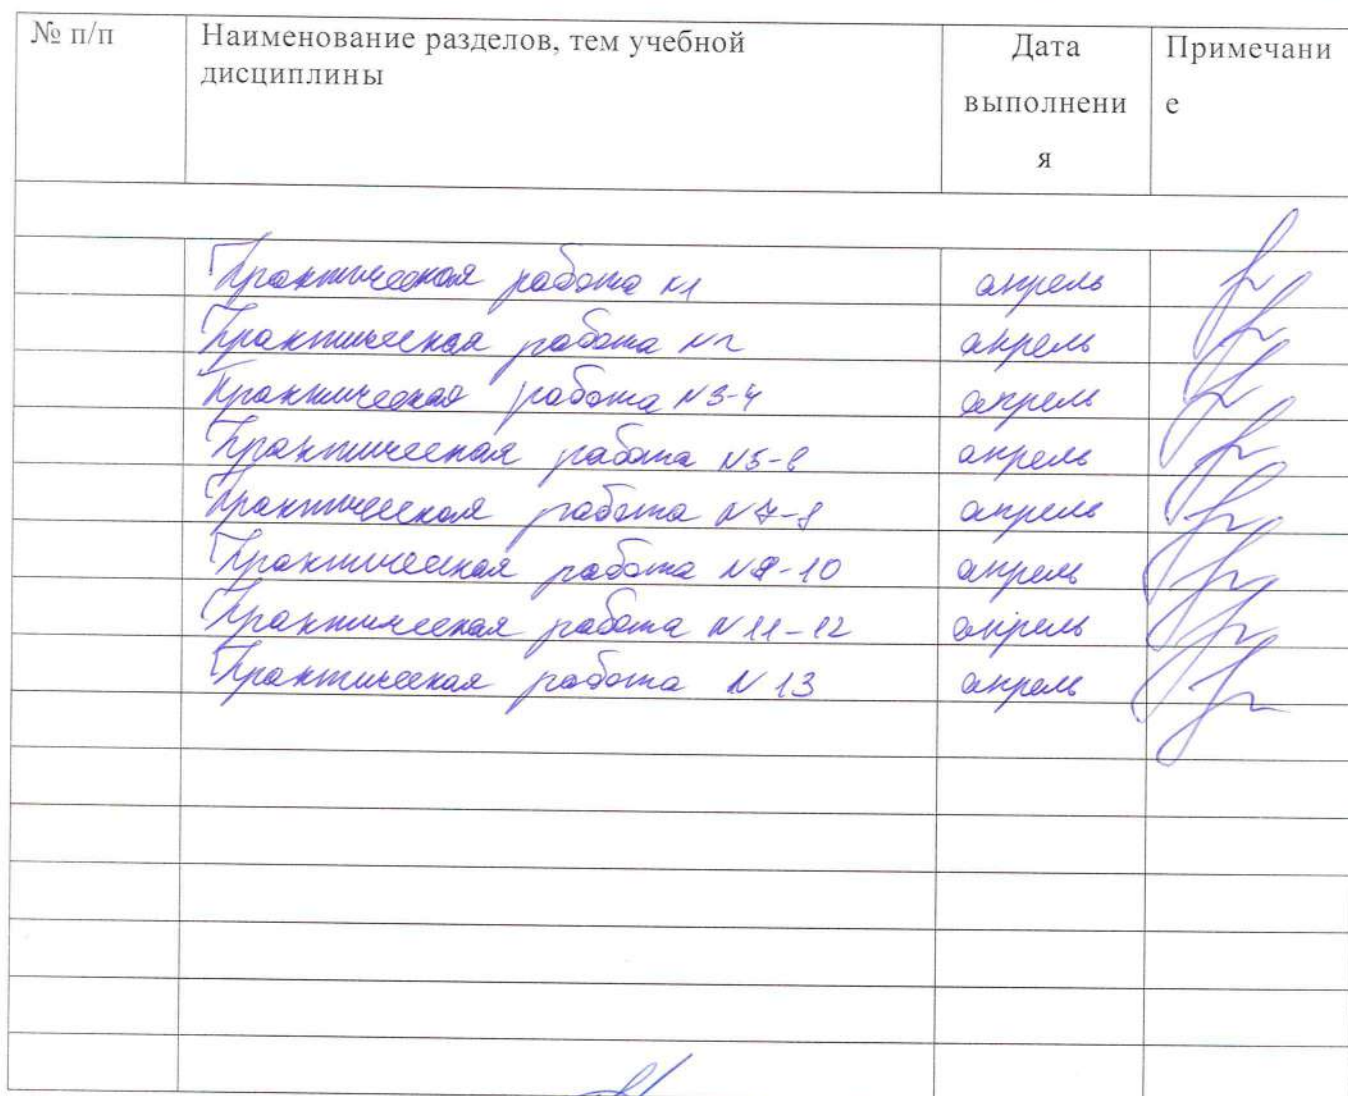 № п/п Наименование разделов, тем учебной Дата Примечани
дисциплины выполнени е
я
Практическая работа №1 апрель
Практическая работа №2 апрель
Практическая работа №3-4 апрель
Практическая работа №5-6 апрель
Практическая работа №7-8 апрель
Практическая работа №9-10 апрель
Практическая работа №11-12 апрель
Практическая работа №13 апрель